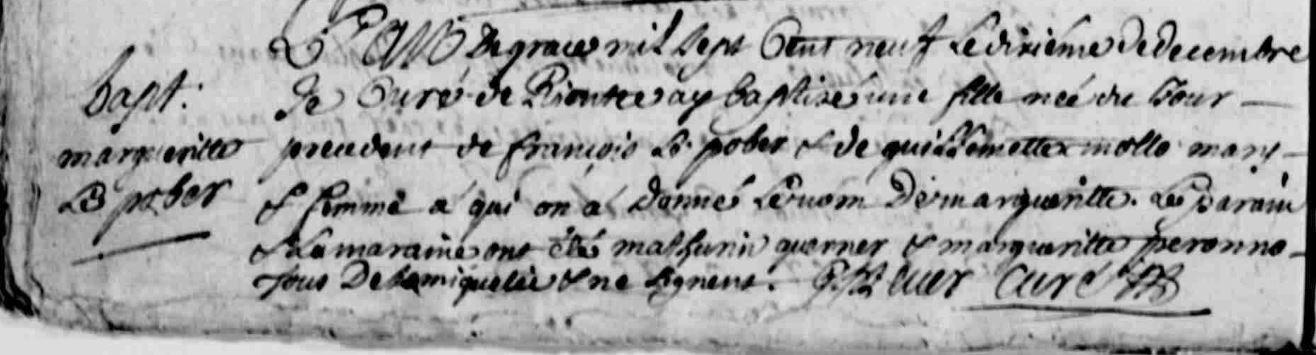 bapt:
margueritte
Le pober
L'An De grace mil Sept Cent neuf Le dixiéme de decembre
Curé de ay baptisé une fille neé du Jour
precedent de françois Le pober & de guillemette mollo mary
& femme a qui on a Donné Le nom De margueritte. Le parain
& La maraine ont été mathurin querner & margueritte peronno
Tous De & ne Signent. Curé